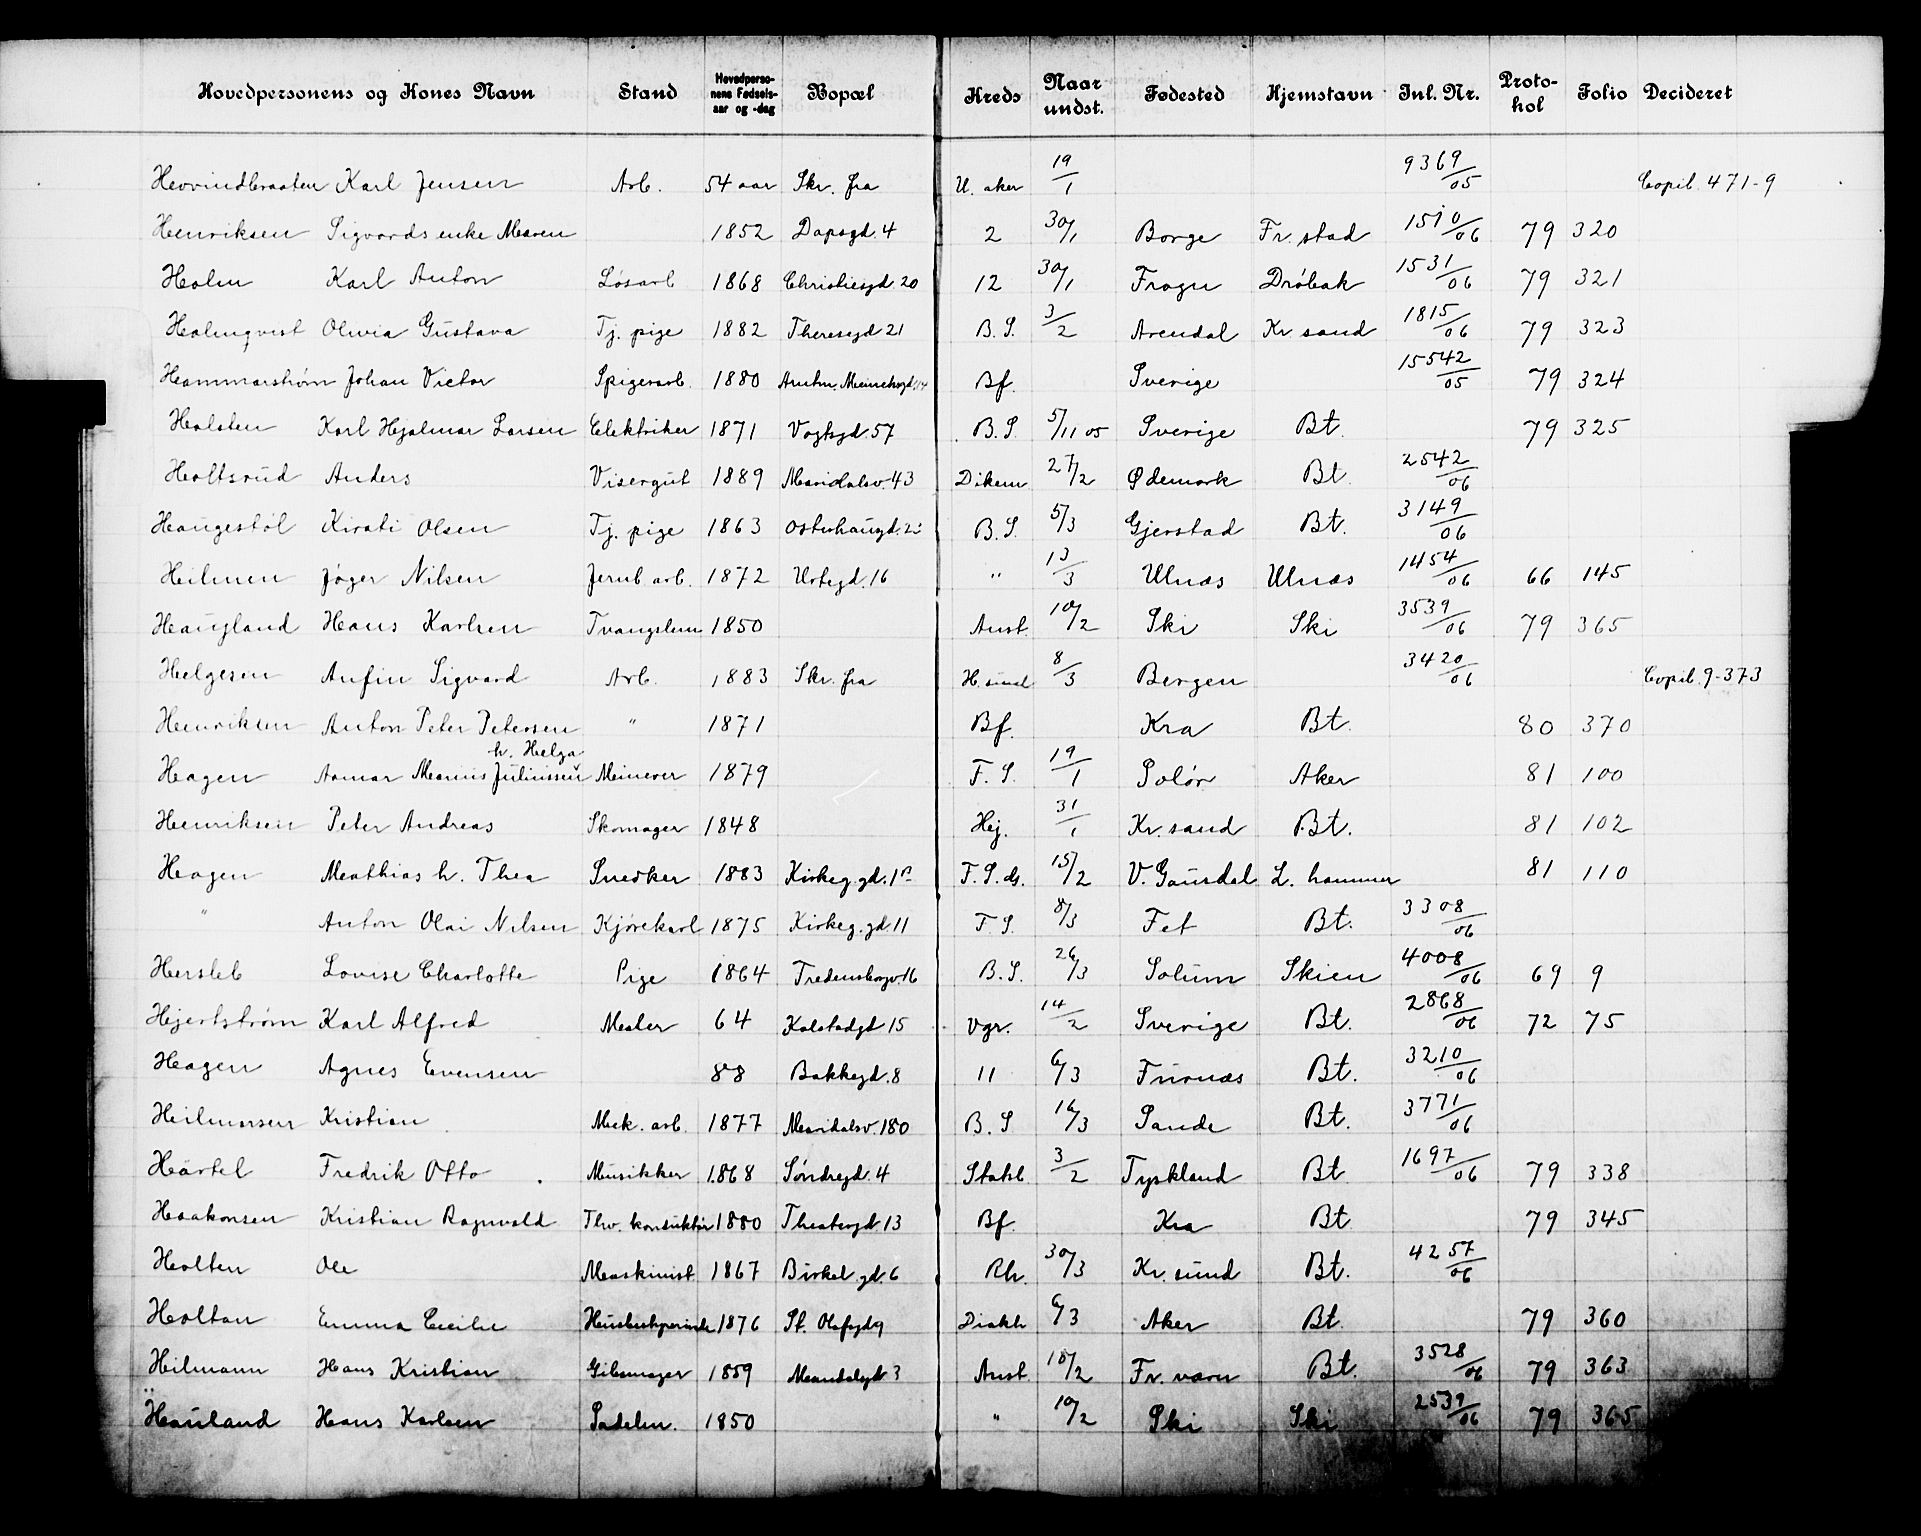 Hovedpersonens og Kones Navn Stand Hovedpersonens Fødselsaar og -dag Bopæl Kreds Naar undst. Fødested Hjemstavn Inl. Nr. Protokol Folio Decideret
Karl Jensen Arb. 54 aar Skr. fra U. aker 19/1 9369/05 Copib. 471-9
Henriksen Sigvards enke Maren 1852 Dapsgd. 4 2 30/1 Borge Fr. stad 1510/06 79 320
Holm Karl Anton Løsarb 1868 Christiesgd. 20 12 30/1 Frogn Drøbak 1531/06 79 321
Holmqvist Olivia Gustava Tj. pige 1882 Theresegd 21 B.S. 3/2 Arendal Kr. sand 1815/06 79 323
Hammarstrøm Johan Victor Spigerarb. 1880 Bf. Sverige 15542/05 79 324
Holsten Karl Hjalmar Larsen Elektriker 1871 Vogtsgd. 57 B.S. 5/11 05 Sverige Bt. 79 325
Holtsrud Anders Visergut 1889 Maridalsv. 43 Dikem. 27/2 Ødemark Bt. 2542/06
Haugestøl Kirsti Olsen Tj. pige 1863 Osterhausgd. B.S. 5/3 Gjerstad Bt. 3149/06
Heilmen Jøger Nilsen Jernb. arb. 1872 Urtegd. 16 " 13/3 Ulnæs Ulnæs 1454/06 66 145
Haugland Hans Karlsen Tvangslem 1850 Anst. 10/2 Ski Ski 3539/06 79 365
Helgesen Anfin Sigvard Arb. 1883 Skr. fra H. sund 8/3 Bergen 3420/06 Copib. 9-373
Henriksen Anton Peter Petersen " 1871 Bf. Kra Bt. 80 370
h. Helga
Hagen Marius Julinssen Minerer 1879 F.S. 19/1 Solør Aker 81 100
Henriksen Peter Andreas Skomager 1848 Hej. 31/1 Kr. sand Bt. 81 102
Hagen Mathias h. Thea Snedker 1883 Kirkeg. gd. F.S. 15/2 V. Gausdal L. hammer 81 110
" Anton Olai Nilsen Kjørekarl 1875 Kirkeg. gd 11 F.S. 8/3 Fet Bt. 3308/06
Hersleb Lovise Charlotte Pige 1864 Fredensborgv. 16 B.S. 26/3 Solum Skien 4008/06 69 9
Hjertstrøm Karl Alfred Maler 64 Kalstadgt 15 Vgr. 14/2 Sverige Bt. 2868/06 72 75
Hagen Agnes Evensen 88 Bakkegd. 8 11 6/3 Furnæs Bt. 3210/06
Hilmarsen Kristian Mek. arb. 1877 Maridalsv. 180 B.S 16/3 Sande Bt. 3771/06
Härtel Fredrik Otto Musikker 1868 Søndregd. 4 Statsb 3/2 Tyskland Bt. 1697/06 79 338
Haakonsen Kristian Ragnvald Thv. konduktør 1880 Theatergt 13 Bf. Kra Bt. 79 345
Holten Ole Maskinist 1867 Birkel. gd. 6 Rh. 30/3 Kr. sund Bt. 4257/06
Holtan Emma Cecilie 1876 St. Olafsgd 9 Diakh 6/3 Aker Bt. 79 360
Hilmann Hans Kristian Gibsmager 1859 Mandalsgt 3 Anst. 10/2 Fr. værn Bt. 3528/06 79 363
Hauland Hans Karlsen Sadelm. 1850 " 10/2 Ski Ski 2539/06 79 365